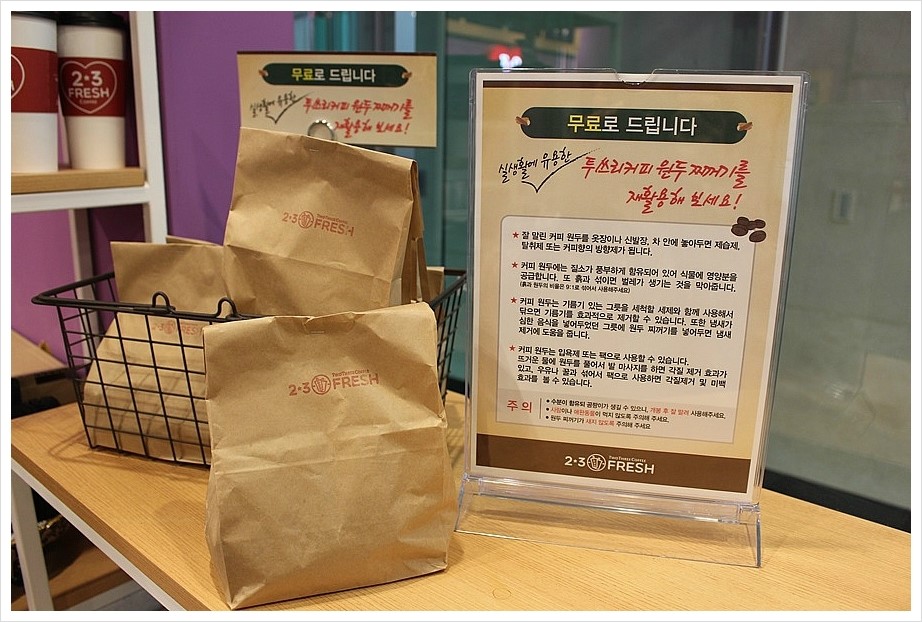 2·3
FRESH
COFFEE
무료로 드립니다
실생활에 유용한
투쓰리커피 원두 찌꺼기를
재활용해 보세요!
2·3 TwoThree Coffee
FRESH
2·3 FRESH
2·3 TwoThree Coffee
FRESH
무료로 드립니다
실생활에 유용한
투쓰리커피 원두 찌꺼기를
재활용해 보세요!
★ 잘 말린 커피 원두를 옷장이나 신발장, 차 안에 놓아두면 제습제,
탈취제 또는 커피향의 방향제가 됩니다.
★ 커피 원두에는 질소가 풍부하게 함유되어 있어 식물에 영양분을
공급합니다. 또 흙과 섞이면 벌레가 생기는 것을 막아줍니다.
(흙과 원두의 비율은 9:1로 섞어서 사용해주세요)
★ 커피 원두는 기름기 있는 그릇을 세척할 세제와 함께 사용해서
닦으면 기름기를 효과적으로 제거할 수 있습니다. 또한 냄새가
심한 음식을 넣어두었던 그릇에 원두 찌꺼기를 넣어두면 냄새
제거에 도움을 줍니다.
★ 커피 원두는 입욕제 또는 팩으로 사용할 수 있습니다.
뜨거운 물에 원두를 풀어서 발 마사지를 하면 각질 제거 효과가
있고, 우유나 꿀과 섞어서 팩으로 사용하면 각질제거 및 미백
효과를 볼 수 있습니다.
주의
• 수분이 함유되 곰팡이가 생길 수 있으니, 개봉 후 잘 말려 사용해주세요.
• 사람이나 애완동물이 먹지 않도록 주의해 주세요.
• 원두 찌꺼기가 새지 않도록 주의해 주세요
2·3 TwoThree Coffee
FRESH